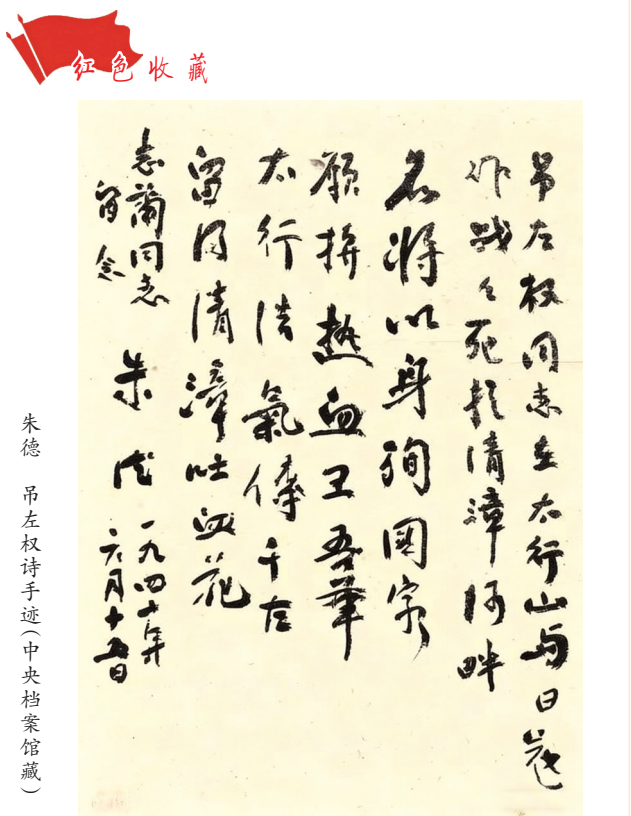 红色收藏
吊左权同志在太行山与日寇
作战々死於清漳河畔
名将以身殉國家
願拚热血卫吾華
太行浩氣傳千古
留得清漳吐血花
志蘭同志
留念
朱德
一九四二年
六月十五日
朱德 吊左权诗手迹(中央档案馆藏)